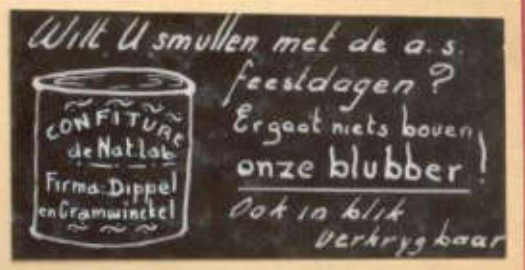 Wilt U smullen met de a.s.
feestdagen?
Er gaat niets boven
onze blubber!
Ook in blik
verkrygbaar
CONFITURE
de Natlab
Firma Dippel
en Gramwinckel